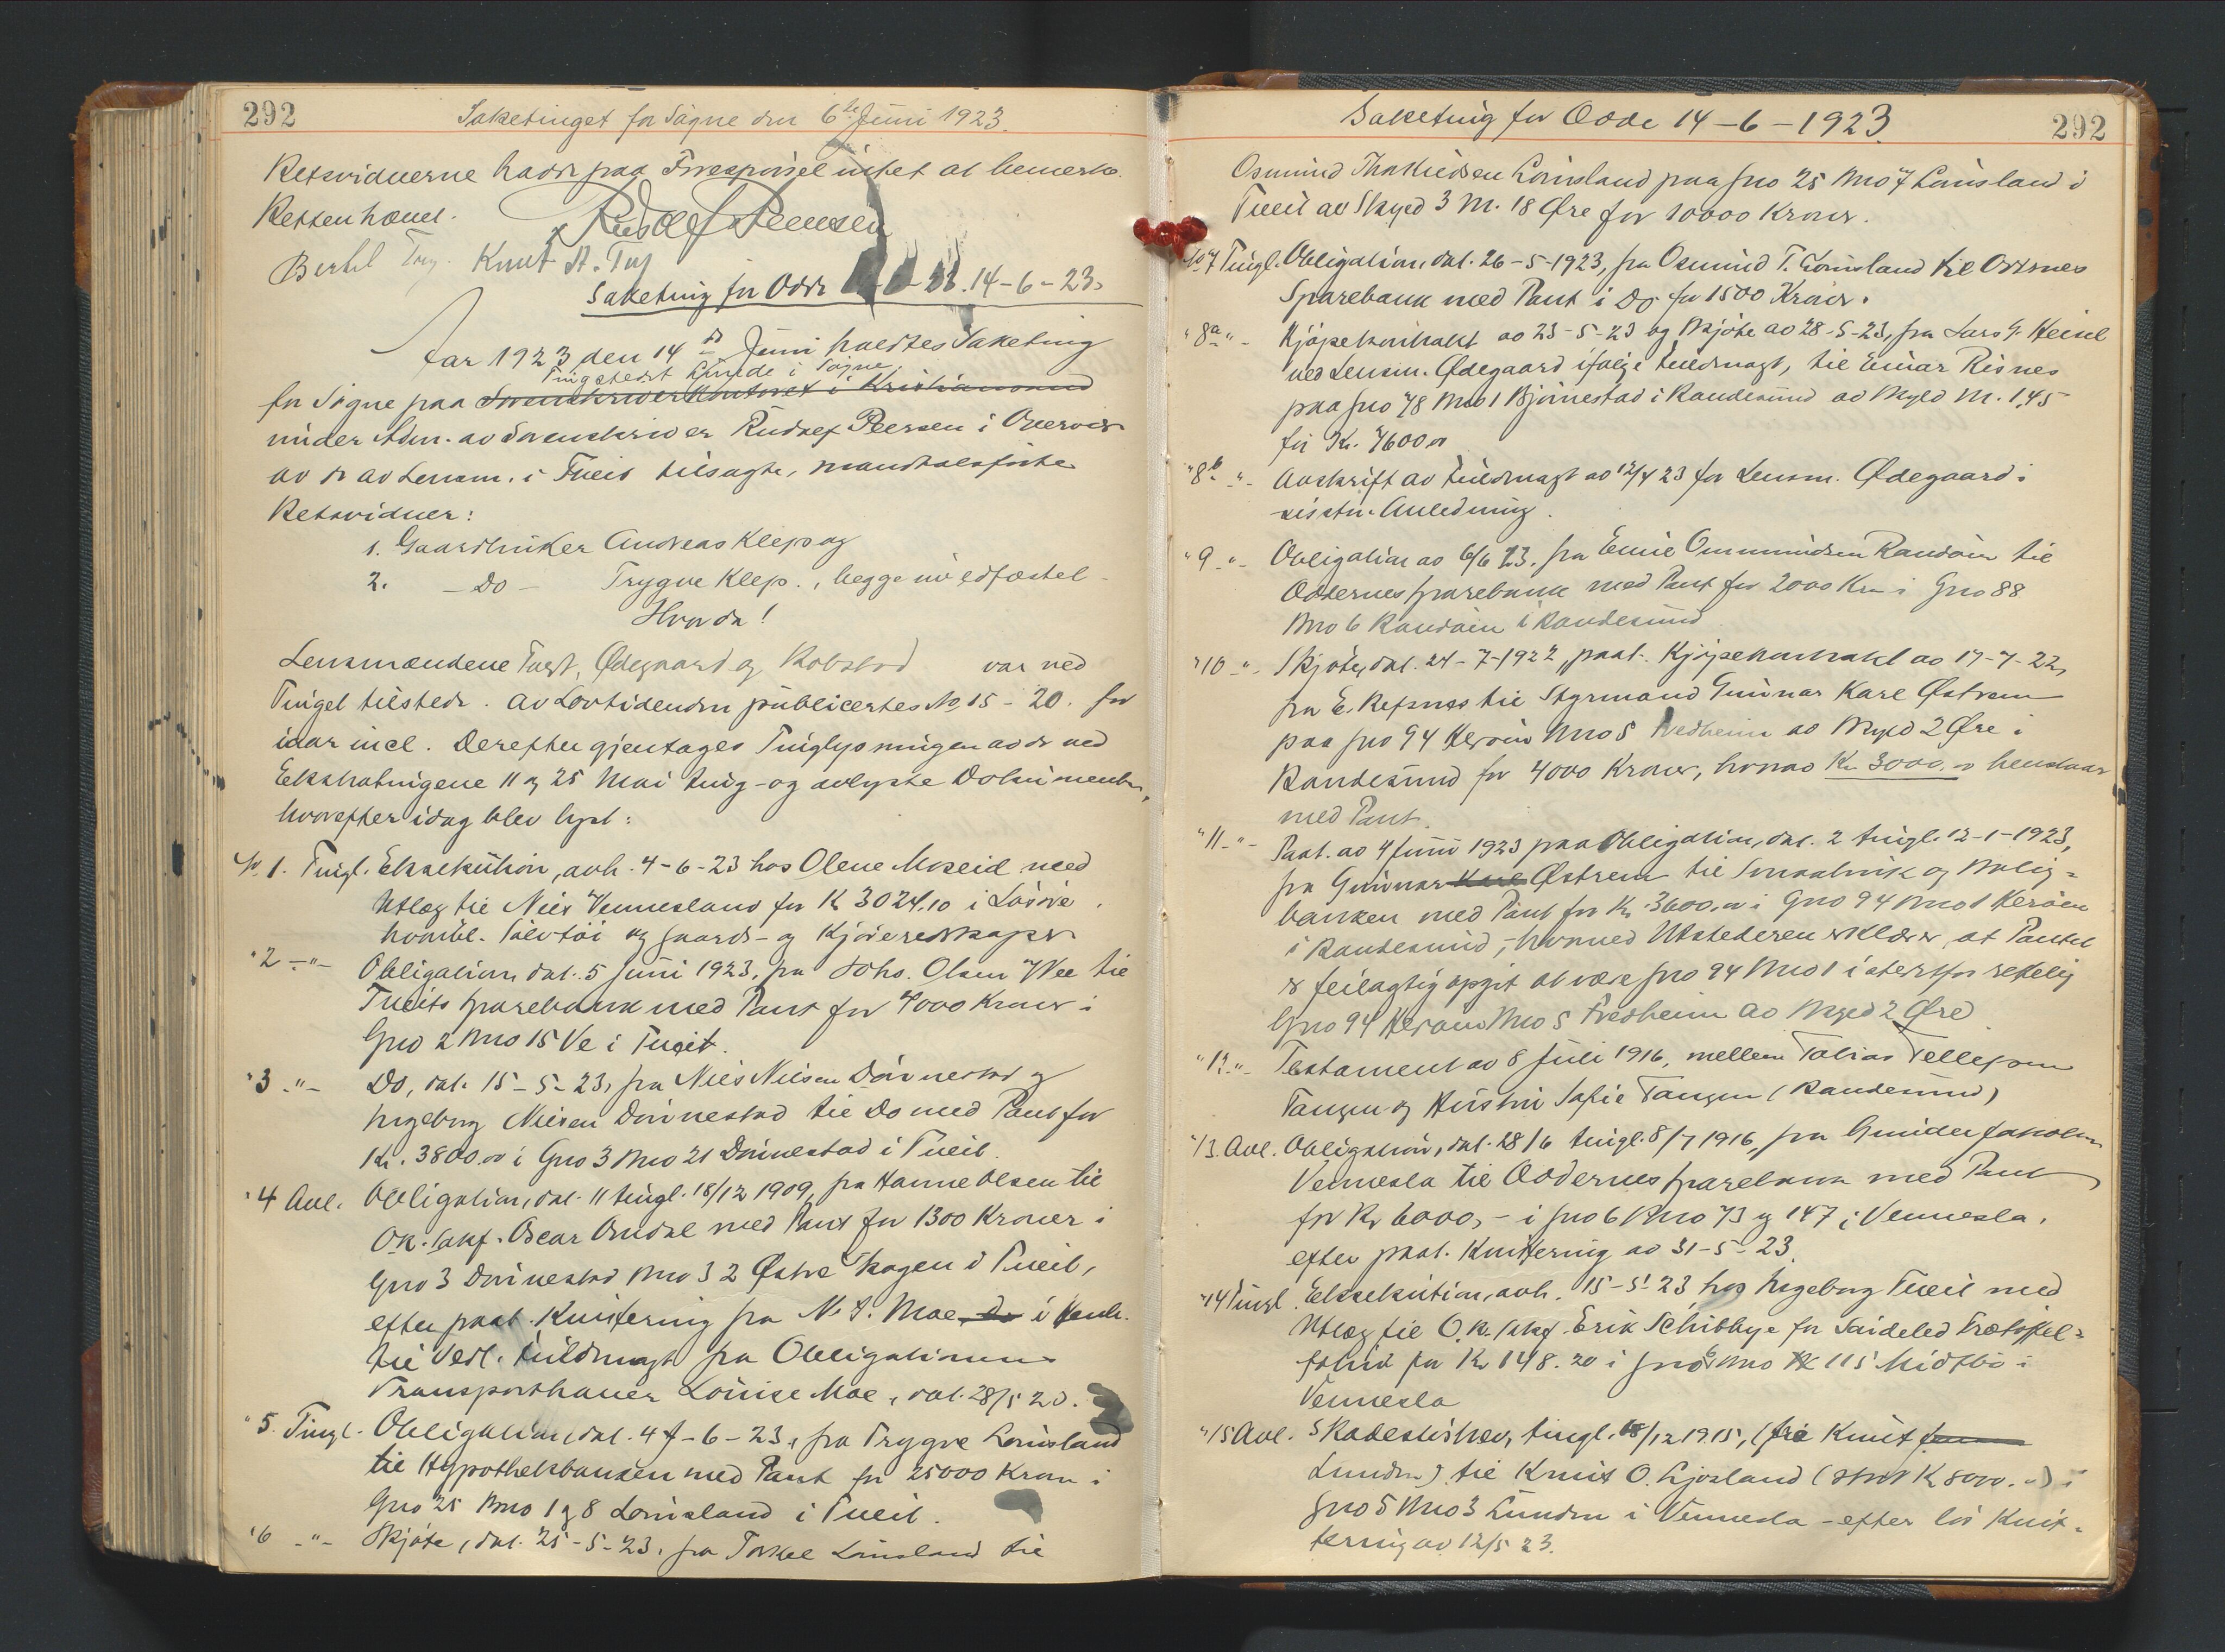 292
Saketinget for Søgne den 6te Juni 1923.
Retsvidnerne hadde paa Forespørsel intet at bemerke.
Retten hævet.
Rudolf Peersen
Bertel Try. Knut A. Try
Saketing for Odde 14-6-23.
Aar 1923 den 14de Juni holdtes Saketing
Tingstedet Lunde i Søgne
for Søgne paa Sorenskriverkontoret i Kristianssand
under Adm. av Sorenskriver Rudolf Peersen i Overvær
av de av Lensm. i Tveit tilsagte, mandtalsførte
Retsvidner:
1. Gaardbruker Andreas Klep og
2. - Do - Trygve Klep., begge nu edfæstet -
Hvorda!
Lensmændene Tveit, Ødegaard og Robstad var ved
Tinget tilstede. Av Lovtidenden publicertes No 15-20. for
iaar incl. Derefter gjentages Tinglysningen av de ved
Ekstratingene 11 og 25 Mai ting- og avlyste Dokumenter,
hvorefter idag blev lyst:
No 1. Tingl. Eksekution, avh. 4-6-23 hos Olene Moseid med
Utlæg til Nils Vennesland for K 3024,10 i Løsøre
hvoribl. Sølvtøi og gaards- og Kjøreredskaper
" 2 -"- Obligation, dat. 5 Juni 1923, fra Johs. Olsen Vee til
Tveits Sparebank med Pant for 4000 Kroner i
Gno 2 Bno 15 Ve i Tveit.
" 3 -"- Do, dat. 15-5-23, fra Nils Nilsen Dønnestad og
Ingeborg Nilsen Dønnestad til Do med Pant for
Kr. 3800.00 i Gno 3 Bno 21 Dønnestad i Tveit.
" 4 Avl. Obligation, dat. 11 tingl. 18/12 1909, fra Hanne Olsen til
O.R. Sakf. Oscar Omdal med Pant for 1300 Kroner i
Gno 3 Dønnestad Bno 3 2 Østre Skogen i Tveit,
efter paat. Kvittering fra N. J. Moe, do i henh.
til vedl. Fuldmagt fra Obligationens
Transporthaver Louise Moe, dat. 28/5 20.
" 5. Tingl. Obligation, dat. 4-6-23, fra Trygve Lømsland
til Hypothekbanken med Pant for 25000 Kroner i
Gno 25 Bno 1 og 8 Lømsland i Tveit.
" 6 -"- Skjøte, dat. 25-5-23, fra Torkel Lømsland til
Saketing for Odde 14-6-1923
292
Osmund Lømsland paa Gno 25 Bno 7 Lømsland i
Tveit av Skyld 3 M. 18 Øre for 10000 Kroner.
No 7 Tingl. Obligation, dat. 26-5-1923, fra Osmund T. Lømsland til Oddernes
Sparebank med Pant i Do for 1500 Kroner.
" 8a " - Kjøpekontrakt av 23-5-23 og Skjøte av 28-5-23, fra Lars G. Heisel
ved Lensm. Ødegaard ifølge Fuldmagt, til Einar Risnes
paa Gno 78 Bno 1 Bjørnestad i Randesund av Skyld M. 1,45
for Kr. 7600,00
" 8b -"- Avskrift av Fuldmagt av 12/4 23 for Lensm. Ødegaard i
sidstn. Anledning.
" 9 -"- Obligation av 6/6 23, fra Emil Ommundsen Randøen til
Oddernes Sparebank med Pant for 2000 Kr i Gno 88
Bno 6 Randøen i Randesund
" 10 -"- Skjøte, dat. 24-7-1922, paat. Kjøpekontrakt av 17-7-22,
fra E. Refsnes til Styrmand Gunnar Karl Østrem
paa Gno 94 Herøen Bno 5 Fredheim av Skyld 2 Øre i
Randesund for 4000 Kroner, hvorav Kr. 3000,00 henstaar
med Pant.
" 11 -"- Paat. av 4 Juni 1923 paa Obligation, dat. 2 tingl. 12-1-1923,
fra Gunnar Karl Østrem til Smaabruk og Bolig-
banken med Pant for Kr. 3600,00 i Gno 94 Bno 1 Herøen
i Randesund, - hvorved Utstederen erklærer, at Pantet
er feilagtig opgit at være Gno 94 Bno 1 istedetfor rettelig
Gno 94 Herøen Bno 5 Fredheim av Skyld 2 Øre
" 12 -"- Testament av 8 Juli 1916, mellem Tobias Tellefsen
Tangen og Hustru Sofie Tangen (Randesund)
" 13. Avl. Obligation, dat. 28/6 tingl. 8/7 1916, fra Gunder Jakobsen
Vennesla til Oddernes Sparebank med Pant
for Kr 6000,- i Gno 6 Bno 73 og 147 i Vennesla,
efter paat. Kvittering av 31-5-23.
" 14 Tingl. Eksekution, avh. 15-5-23 hos Ingeborg Tveit med
Utlæg til O.R. Sakf. Erik Schibbye for Saideled
for Kr 148.20 i Gno 6 Bno 115 Midtbø i
Vennesla
" 15 Avl. Skadesløsbrev, tingl. 18/12 1915, (fra Knut
Lunden) til Knut O. Ljosland (stort K 8000.00) i
Gno 5 Bno 3 Lunden i Vennesla - efter løs Kvit-
tering av 12/5 23.